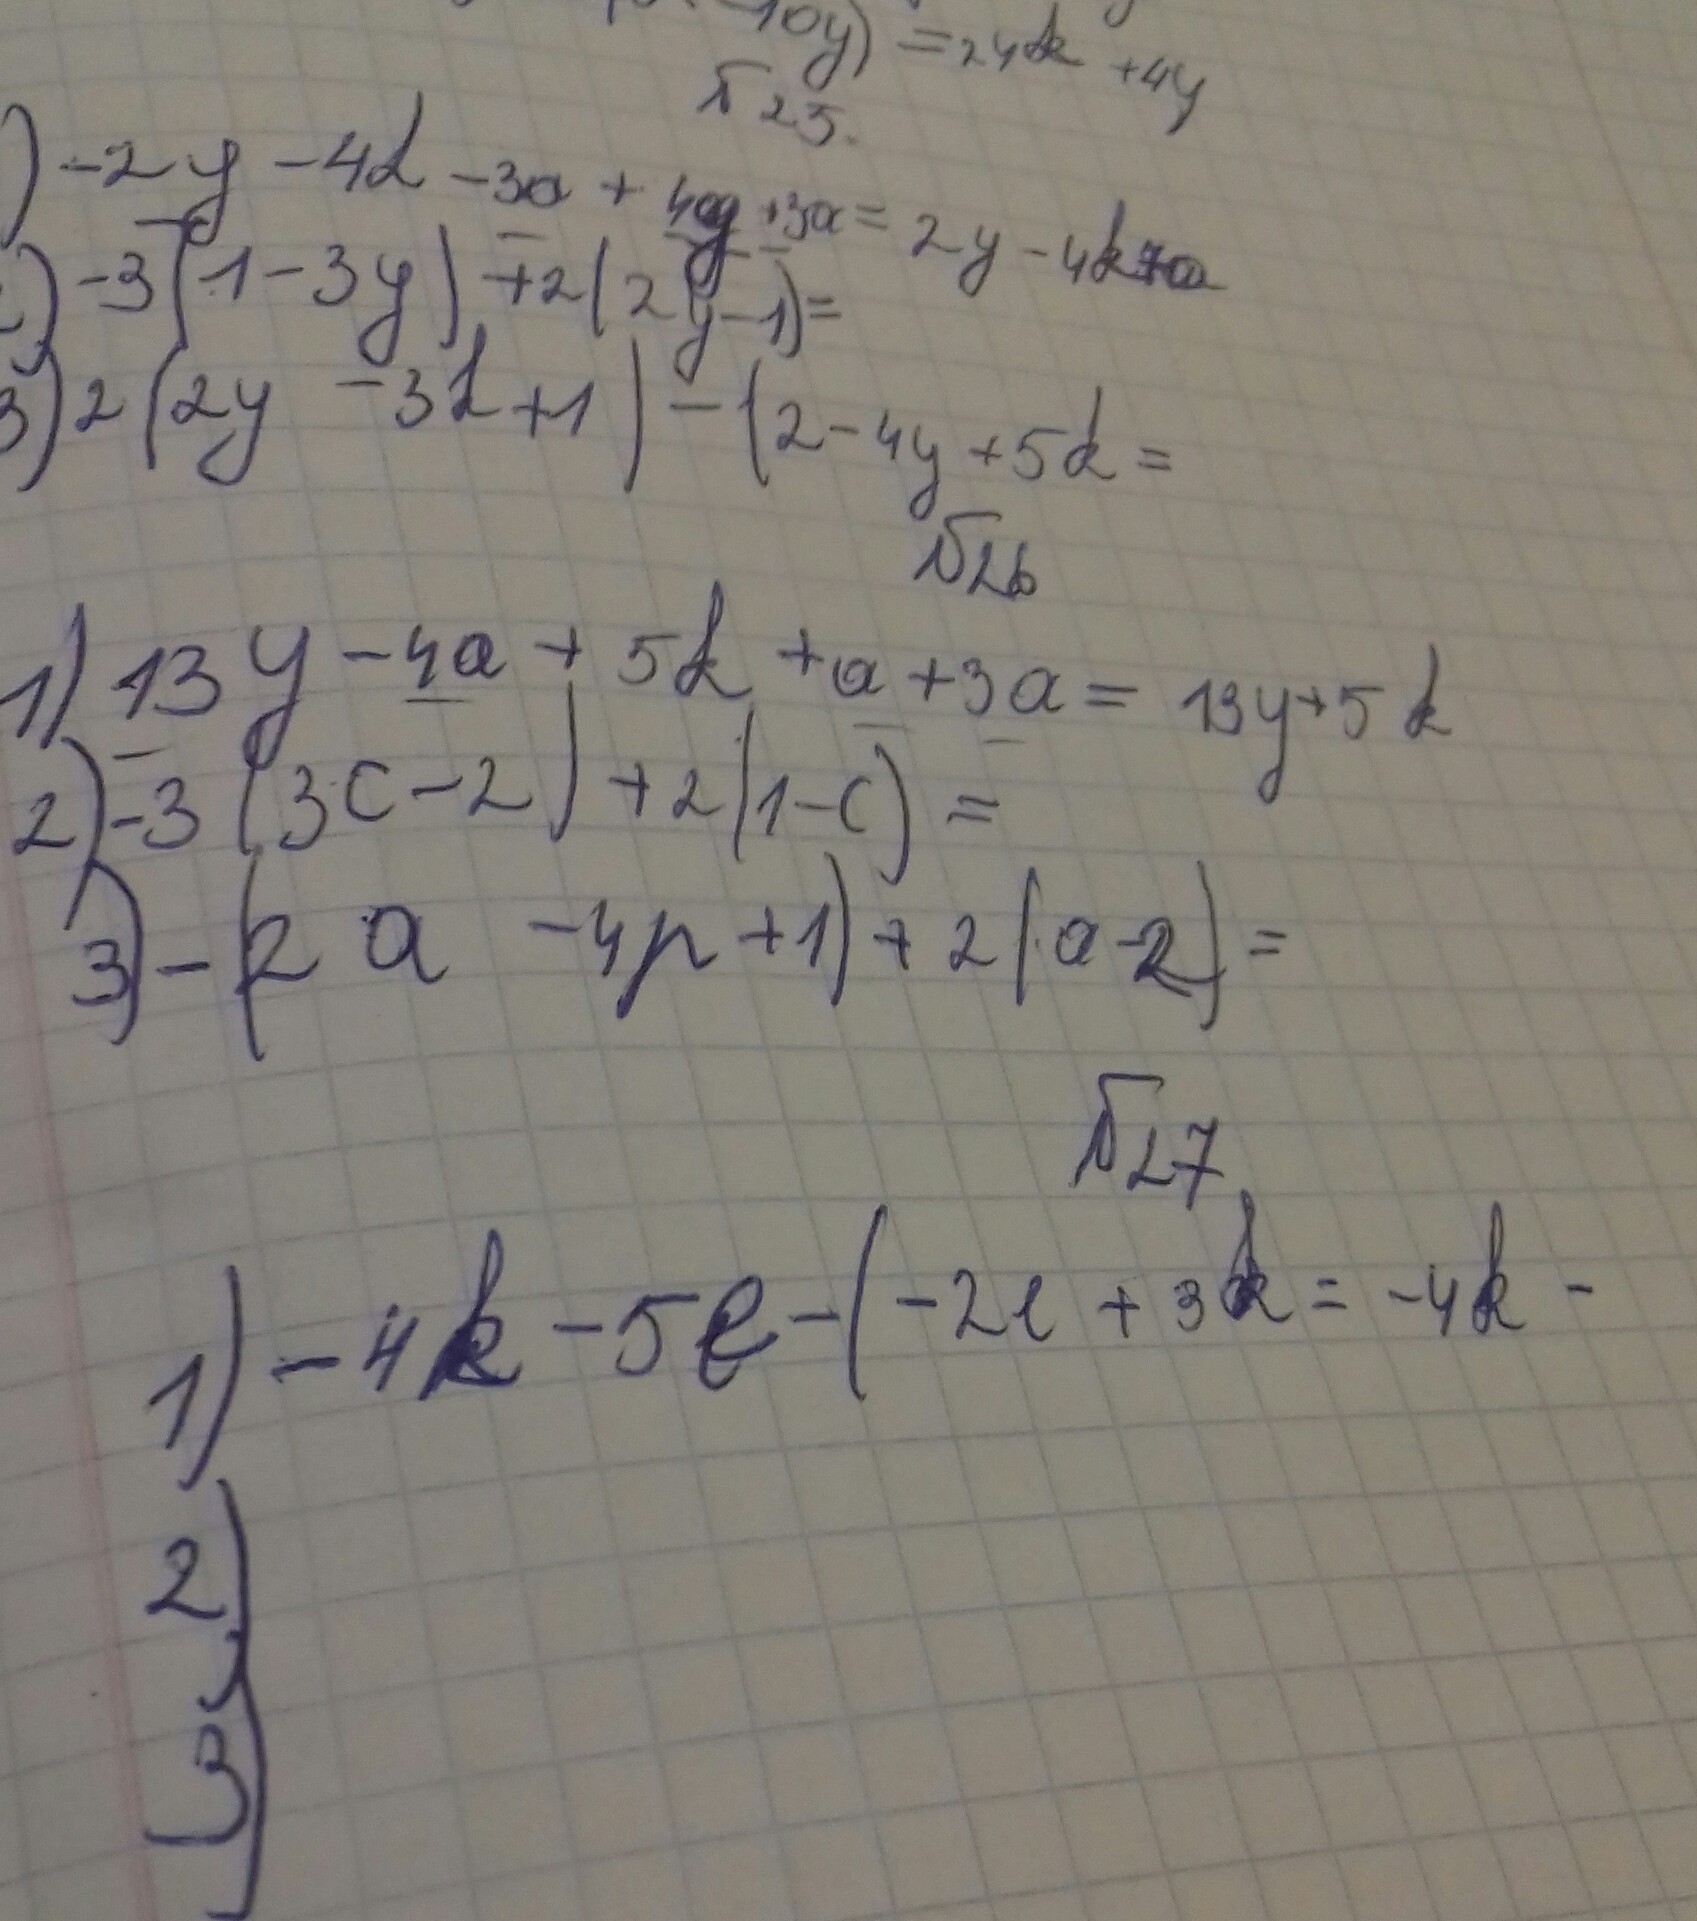 10y) = 24k + 4y
№25.
) -2y - 4k - 3a + 4y + 3a = 2y - 4k
2) -3(1-3y) +2(2y-1)=
3) 2(2y - 3k + 1) - (2 - 4y + 5k =
№26
1) 13y - 4a + 5k + a + 3a = 13y + 5k
2) -3(3c-2) +2(1-c) =
3) -(2a - 4n + 1) + 2(a-2) =
№27
1) -4k - 5l - (-2l + 3k = -4k -
2)
3)